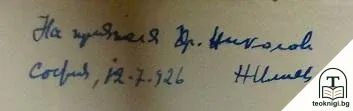 На приятеля Др. Николов
София, 12.7.926
teoknigi.bg